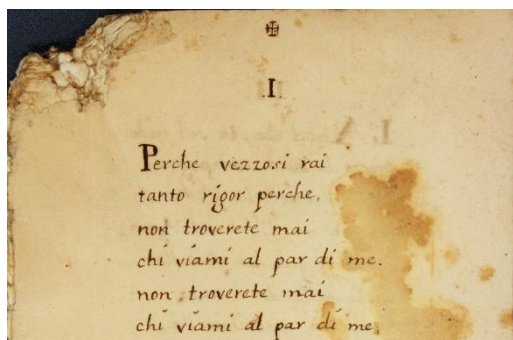 .I.
Perche vezzosi rai
tanto rigor perche,
non troverete mai
chi viami al par di me.
non troverete mai
chi viami al par di me,